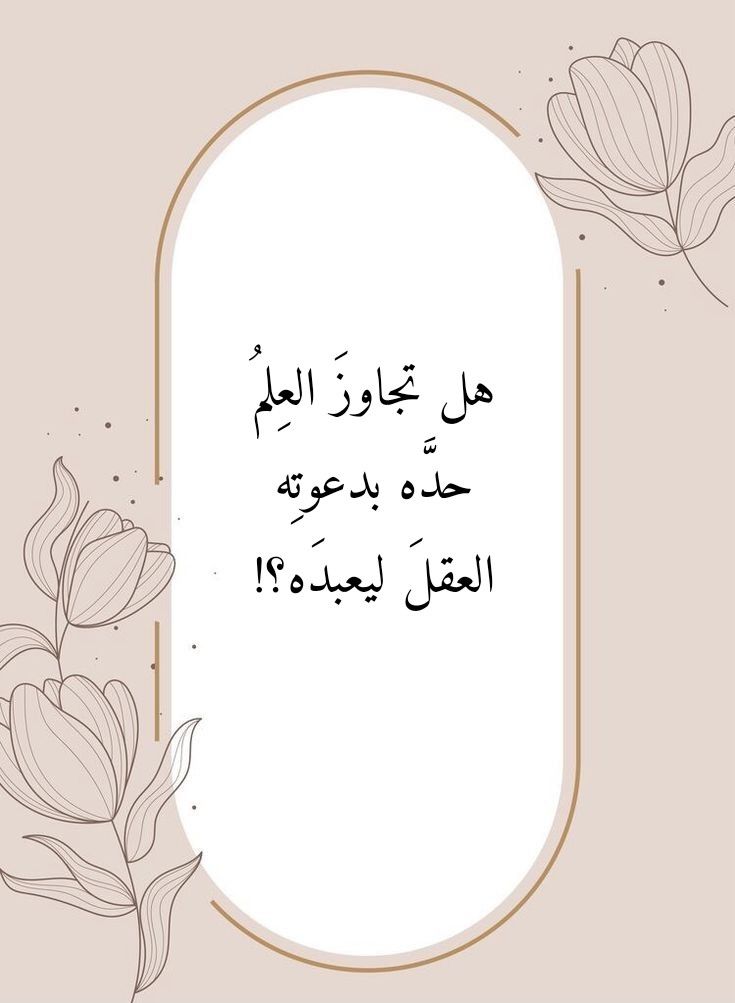 هل تجاوزَ العِلمُ
حدَّه بدعوتِه
العقلَ ليعبدَه؟!